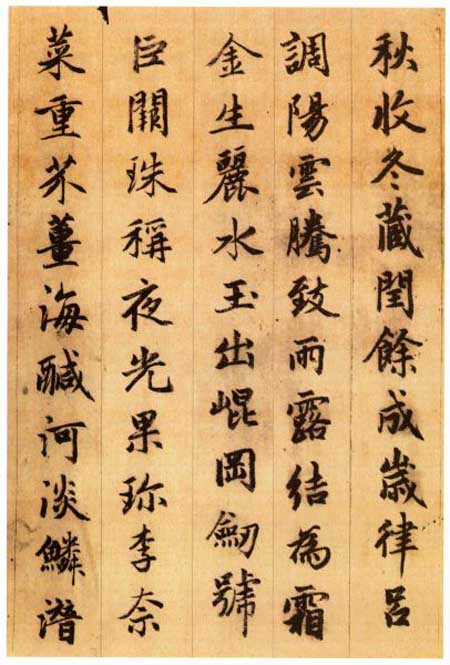 秋收冬蔵閏餘成歳律呂
調陽雲騰致雨露結為霜
金生麗水玉出崐岡劒號
巨闕珠稱夜光果珎李柰
菜重芥薑海醎河淡鱗潛